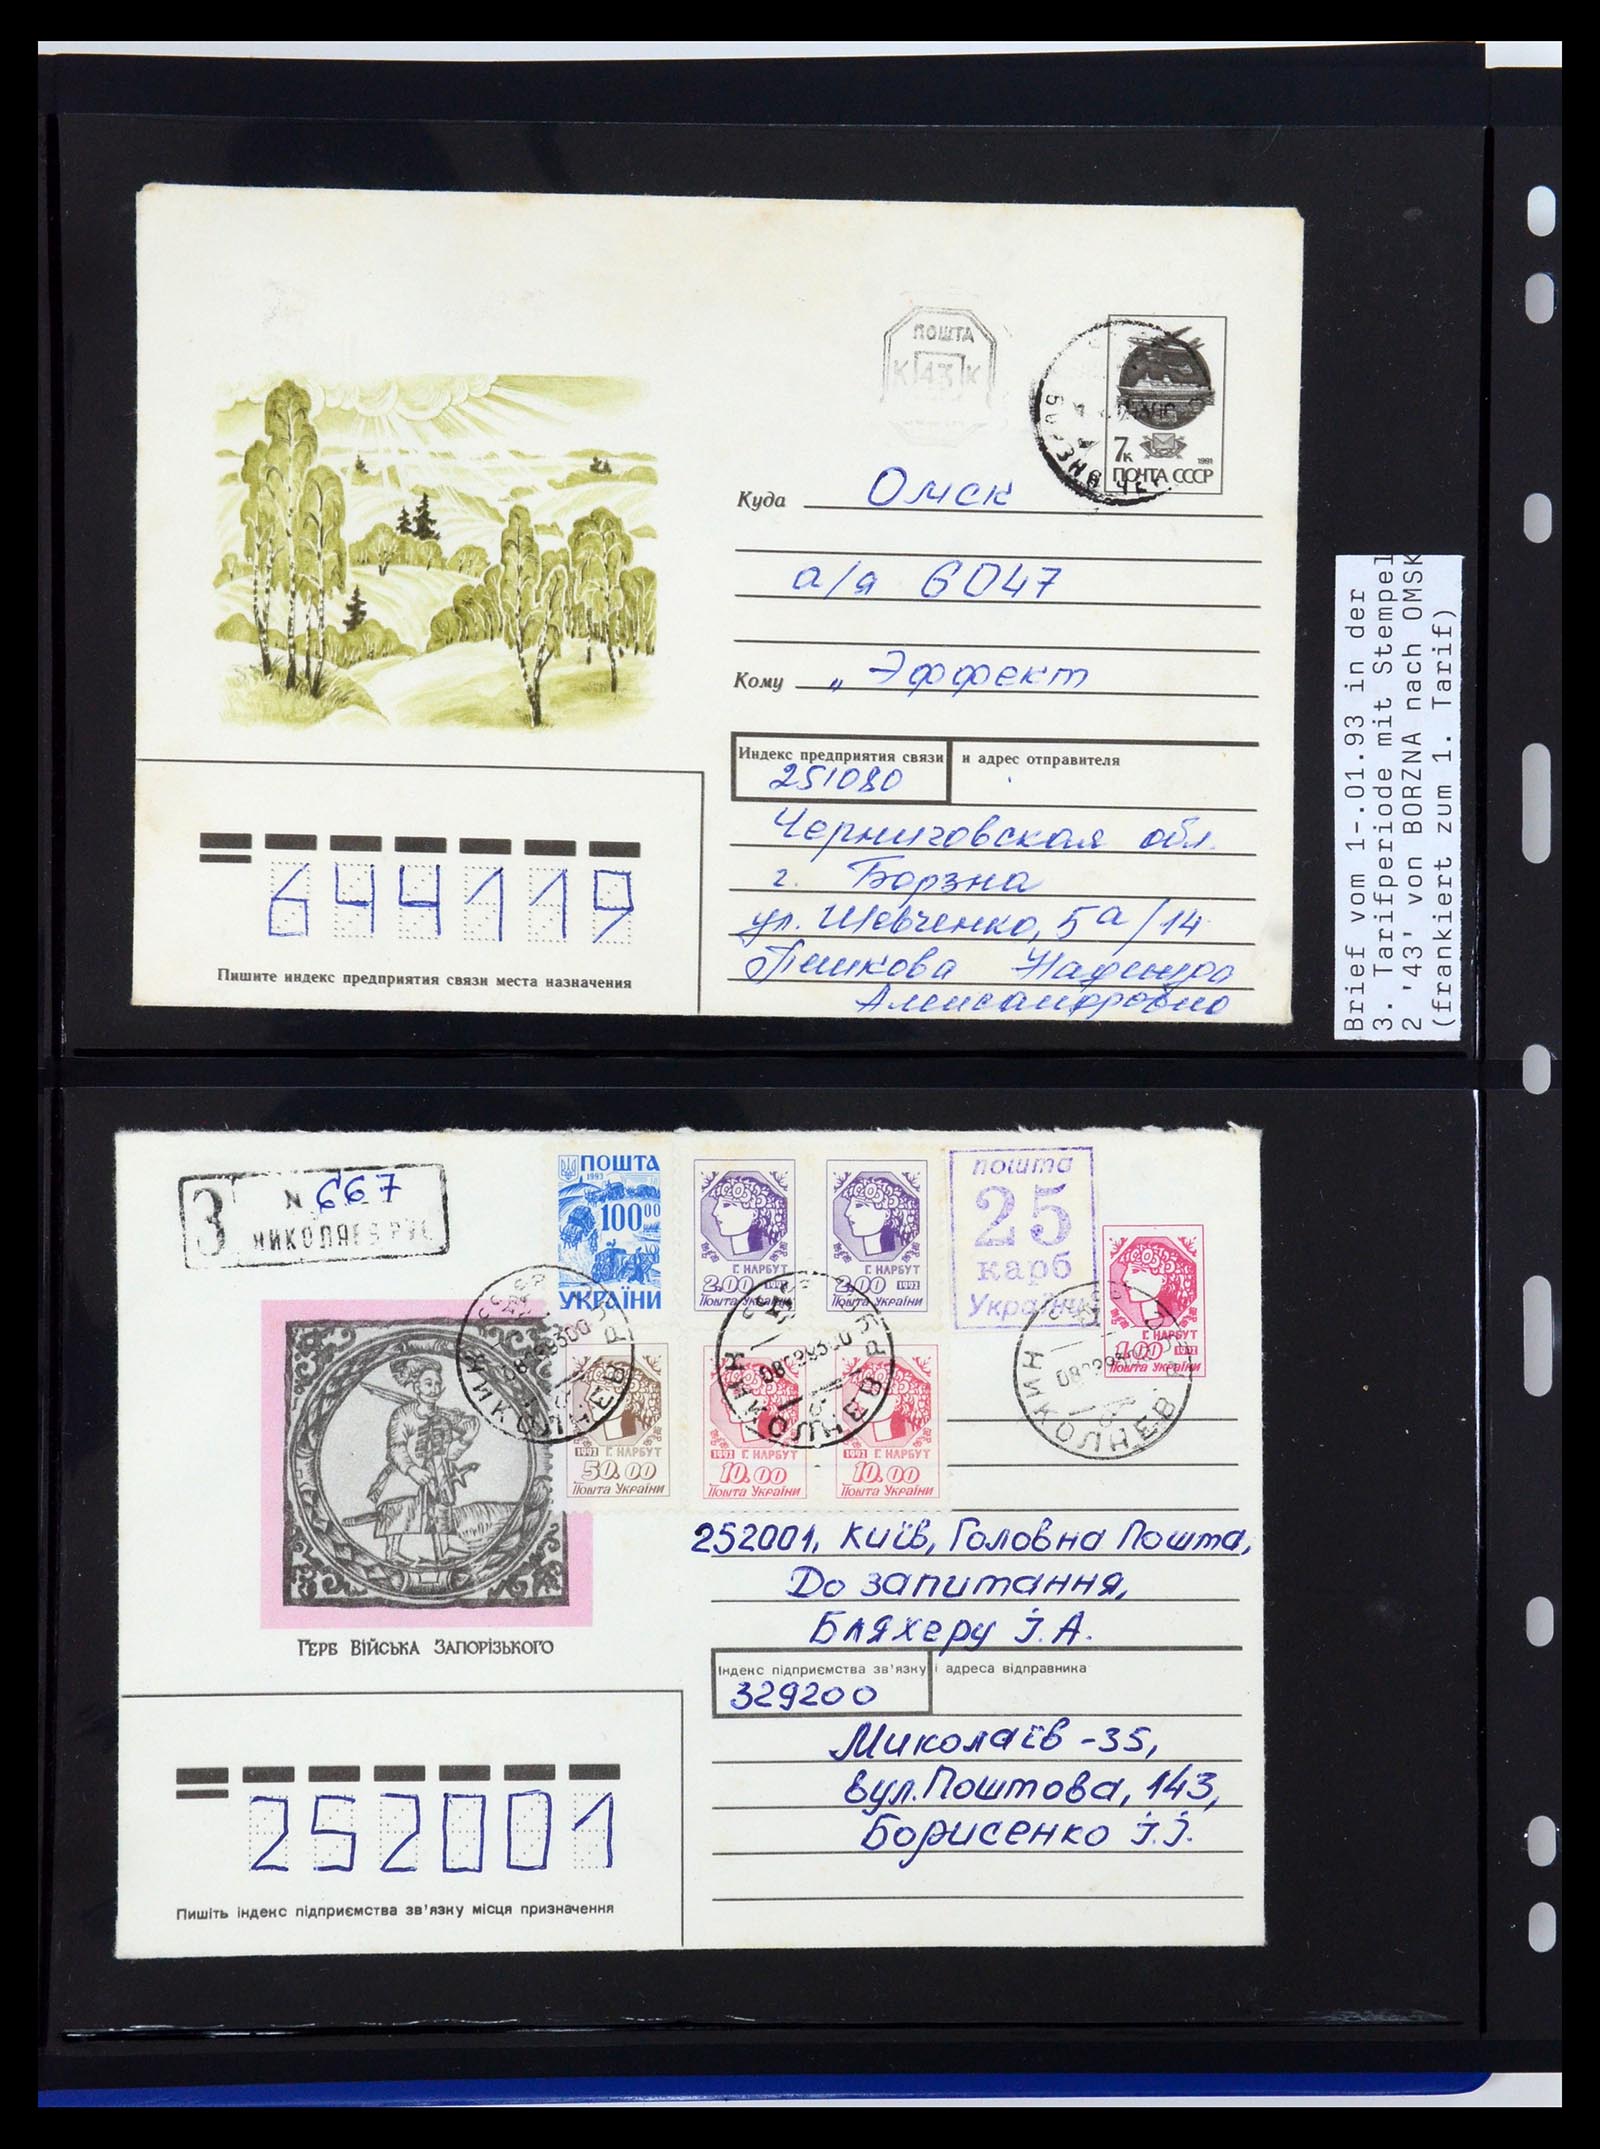 ПОШТА
К 43 К
7к
1991
ПОЧТА СССР
Куда Омск
а/я 6047
Кому „ Эффект
Индекс предприятия связи и адрес отправителя
251080
Черниговская обл.
г. Борзна
ул. Шевченко, 5а/14
Пешкова Надежда
Александровна
644119
Пишите индекс предприятия связи места назначения
Brief vom 1-.01.93 in der
3. Tarifperiode mit Stempel
2 '43' von BORZNA nach OMSK
(frankiert zum 1. Tarif)
З N 667
НИКОЛАЕВ
ПОШТА
1993
100.00
УКРАЇНИ
Г. НАРБУТ
2.00 1992
Пошта України
Г. НАРБУТ
2.00 1992
Пошта України
пошта
25
карб
України
Г. НАРБУТ
1.00 1992
1992 Г. НАРБУТ
50.00
Пошта України
1992 Г. НАРБУТ
10.00
Пошта України
1992 Г. НАРБУТ
10.00
Пошта України
252001, Київ, Головна Пошта,
До запитання,
Бляхеру І.А.
Герб Війська Запорізького
Індекс підприємства зв'язку і адреса відправника
329200
Миколаїв-35,
вул. Поштова, 143,
Борисенко І.І.
252001
Пишіть індекс підприємства зв'язку місця призначення